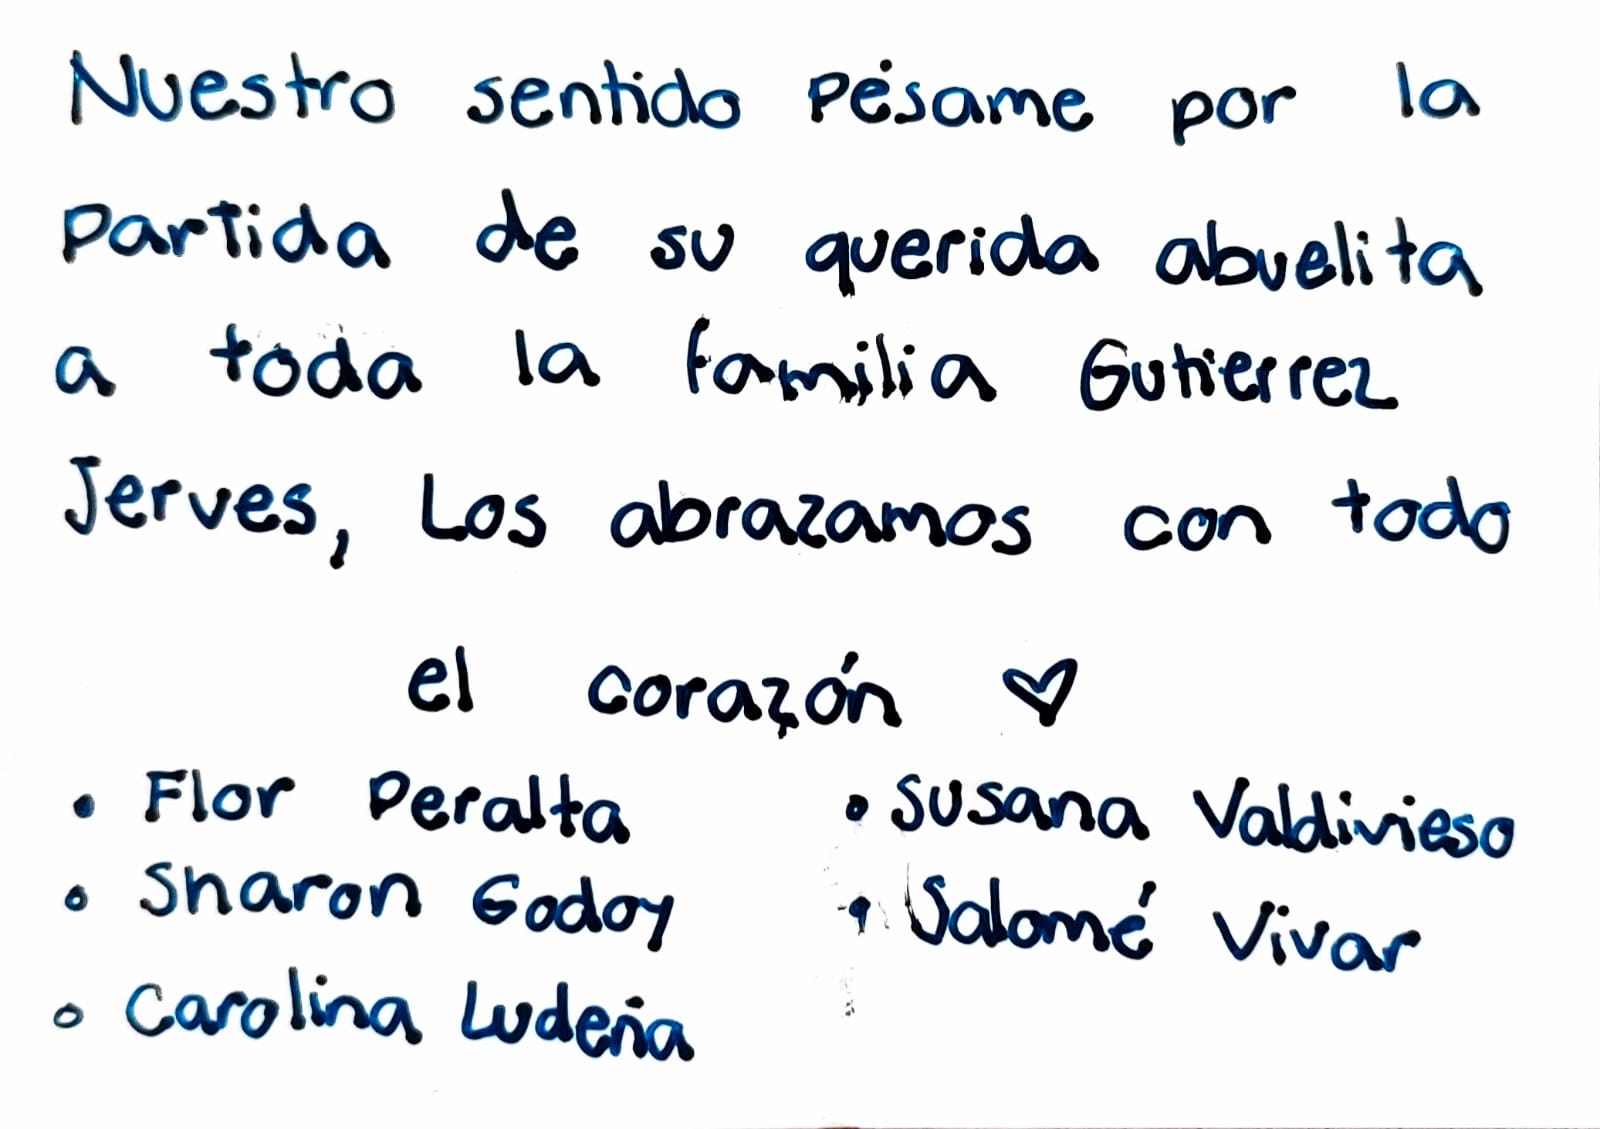 Nuestro sentido pésame por la
partida de su querida abuelita
a toda la familia Gutierrez
Jerves, Los abrazamos con todo
el corazón ♡
• Flor Peralta
• Sharon Godoy
• Carolina Ludeña
• Susana Valdivieso
• Salomé Vivar